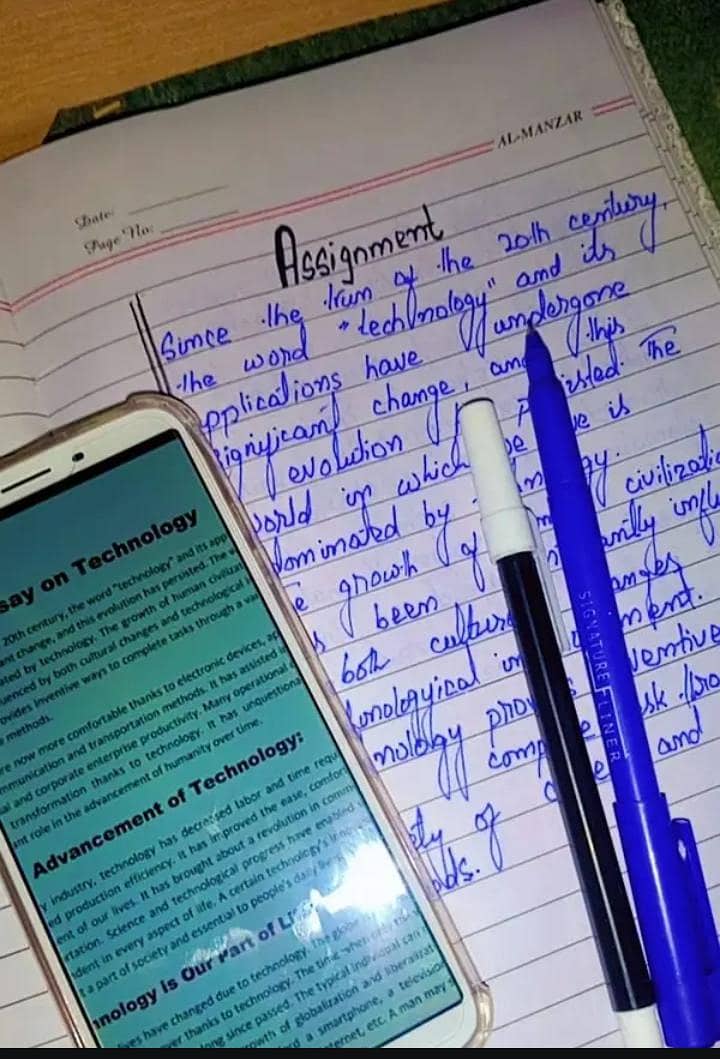 AL-MANZAR
Date:
Page No:
Assignment
Since the trun of the 20th century,
the word "technology" and its
applications have undergone
significant change, and this
evolution
world in which is
dominated by
growth of civilizatio
been
both cultur anges
in ment.
nology prov ventive
sk
ety of and
ods.
SIGNATURE FLINER
say on Technology
20th century, the word "technology" and its app
ant change, and this evolution has persisted. The w
ated by technology. The growth of human civiliza
enced by both cultural changes and technological
ovides inventive ways to complete tasks through a va
methods.
re now more comfortable thanks to electronic devices, ap
mmunication and transportation methods. It has assisted
al and corporate enterprise productivity. Many operational
transformation thanks to technology. It has unquestiona
nt role in the advancement of humanity over time.
Advancement of Technology:
y industry, technology has decreased labor and time requ
ed production efficiency. It has improved the ease, comfor
ent of our lives. It has brought about a revolution in comm
rtation. Science and technological progress have enabled
dent in every aspect of life. A certain technology's
t a part of society and essential to people's daily
nology is Our Part of
lives have changed due to technology. The glob
ver thanks to technology. The time when
long since passed. The typical individual can
owth of globalization and liberalizat
a smartphone, a television
ternet, etc. A man may